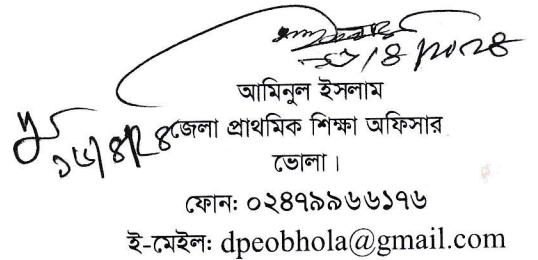 আমিনুল ইসলাম
জেলা প্রাথমিক শিক্ষা অফিসার
ভোলা।
ফোন: ০২৪৭৯৯৬৬১৭৬
ই-মেইল: dpeobhola@gmail.com